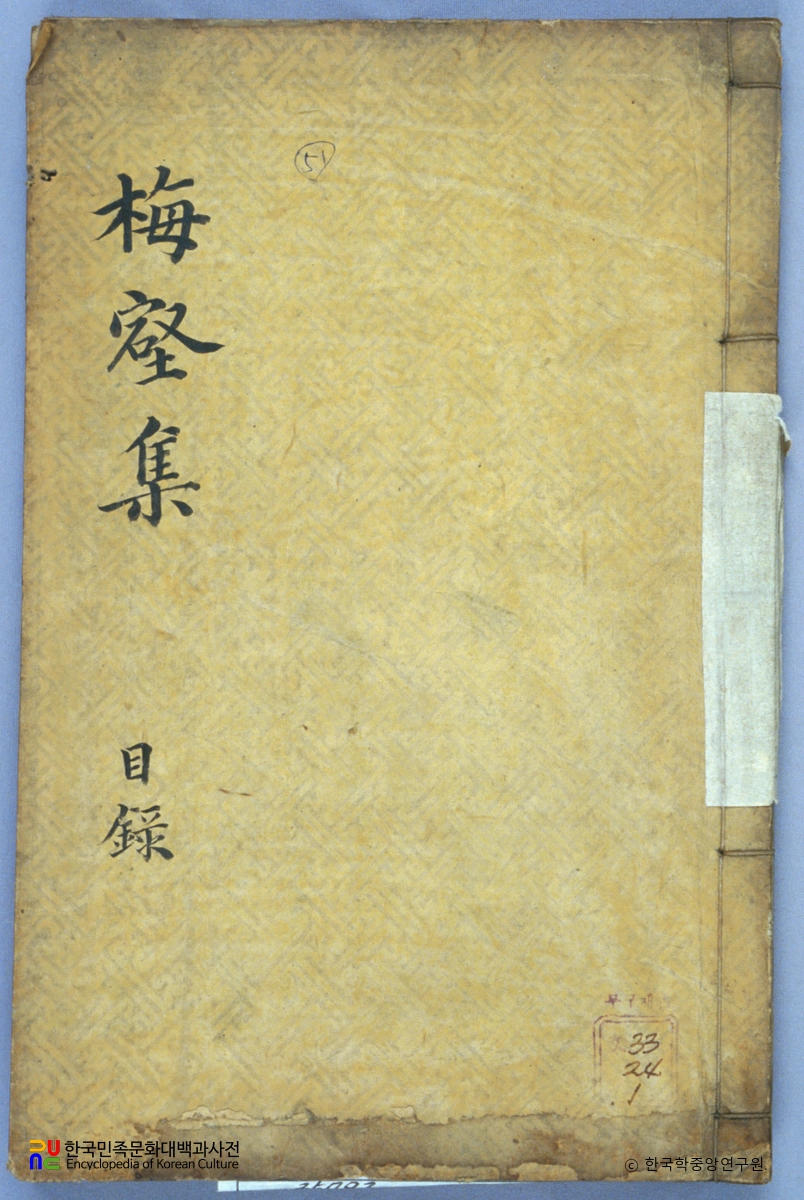 梅壑集
目錄
51
33
24
1
한국민족문화대백과사전
Encyclopedia of Korean Culture
© 한국학중앙연구원